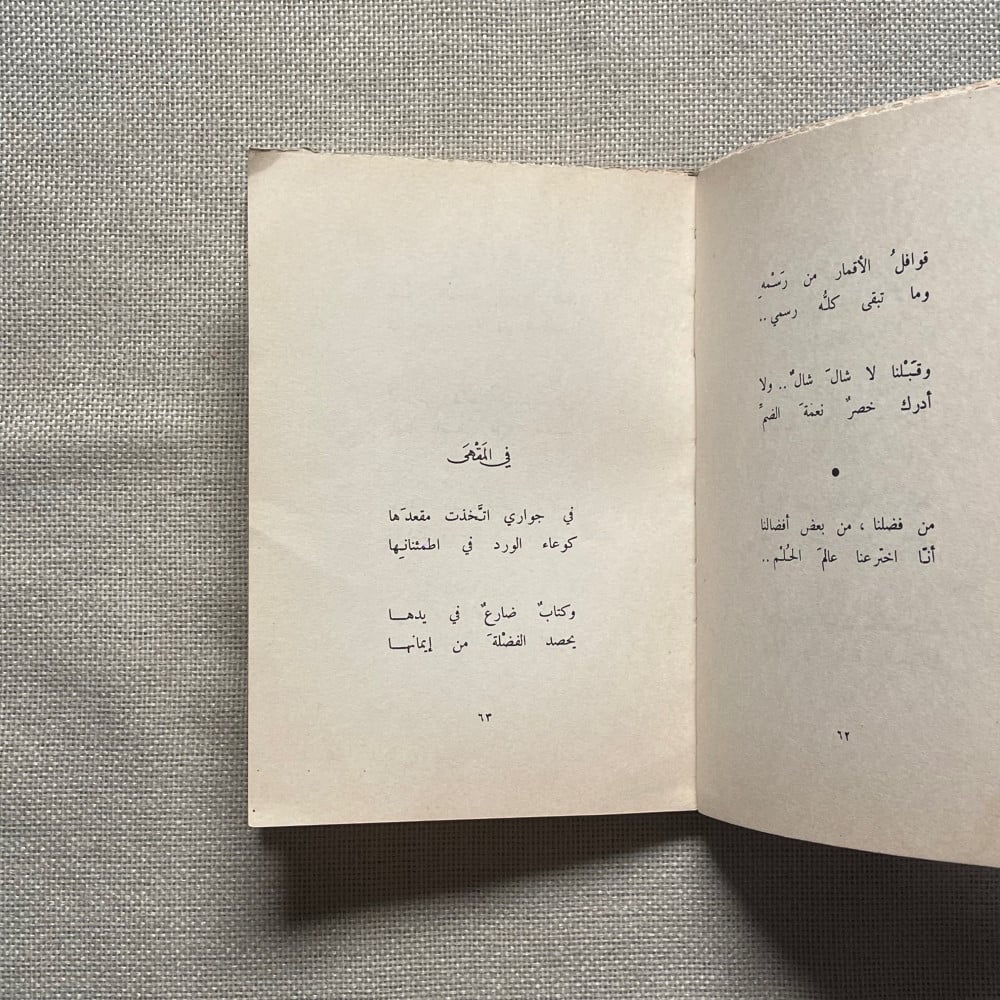 قوافلُ الأقمار من رَسْمِهِ
وما تبقى كلُّه رسمي..
وقَبْلنا لا شالَ شالٌ.. ولا
أدرك خصرٌ نعمةَ الضمِّ
●
من فضلنا، من بعض أفضالنا
أنّا اخترعنا عالمَ الحُلْم..
٦٢
في المَقْهَى
في جواري اتَّخذت مقعدَها
كوعاء الورد في اطمئنانها
وكتابٌ ضارعٌ في يدها
يحصد الفضْلةَ من إيمانها
٦٣